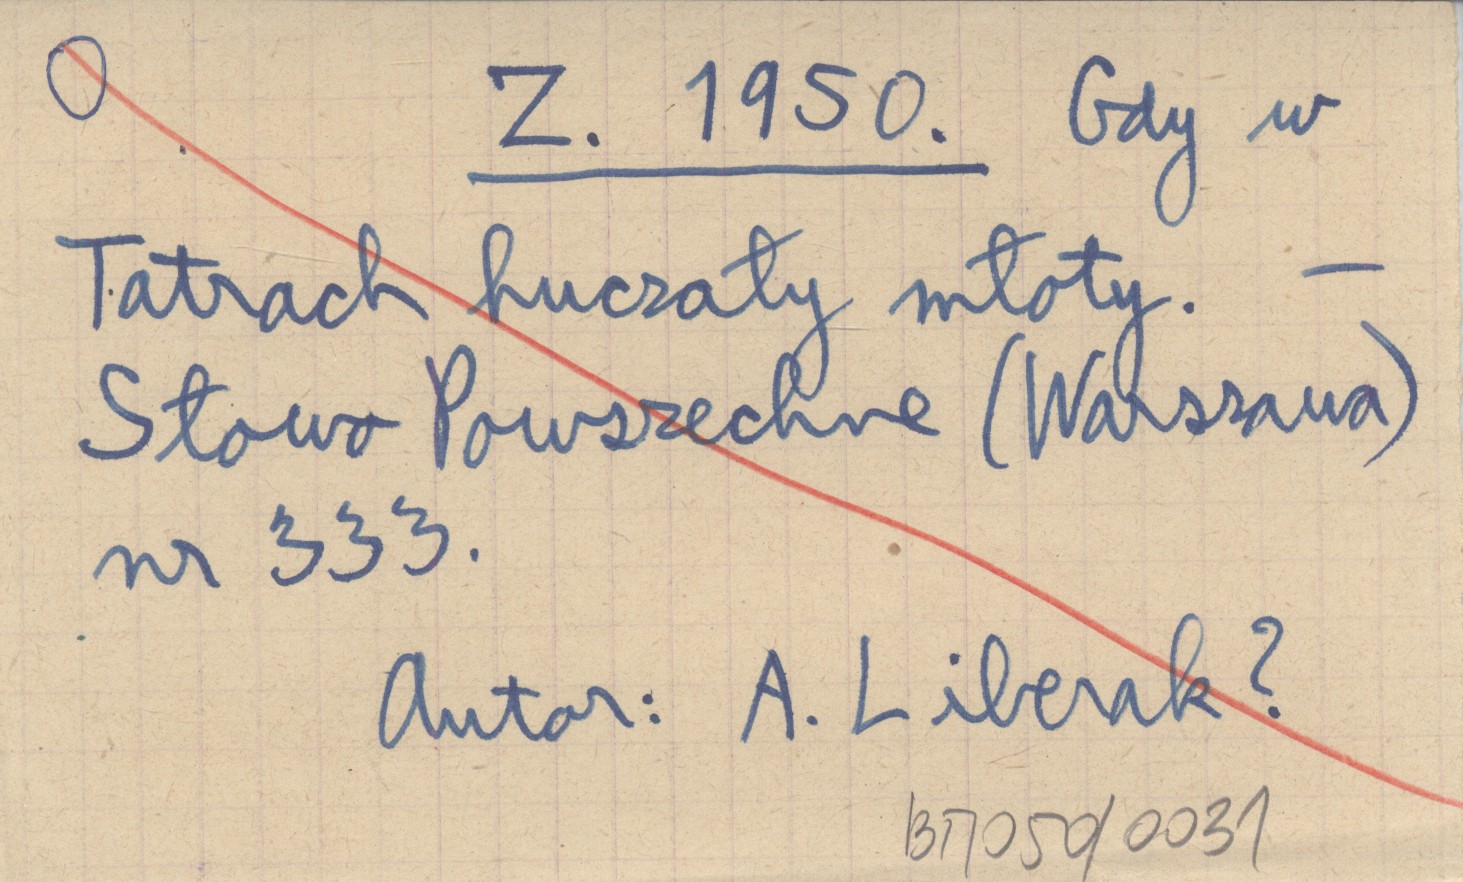 O Z. 1950. Gdy w
Tatrach huczały młoty. —
Słowo Powszechne (Warszawa)
nr 333.
Autor: A. Liberak?
BTJ050/0031